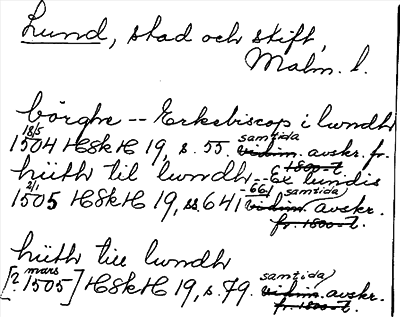 Lund, stad och stift,
Malm. l.
börghe -- Erkebiscop i lwndh
18/5
1504 HSkH 19, s. 55. samtida vidim. avskr. fr. 1800-t.
hüth til lwndh -- Ex lundis
2/1
1505 HSkH 19, ss. 641-661 (samtida) vidim. avskr. fr. 1800-t.
hüth till lwndh
[? mars 1505] HSkH 19, s. 79. samtida) vidim. avskr. fr. 1800-t.